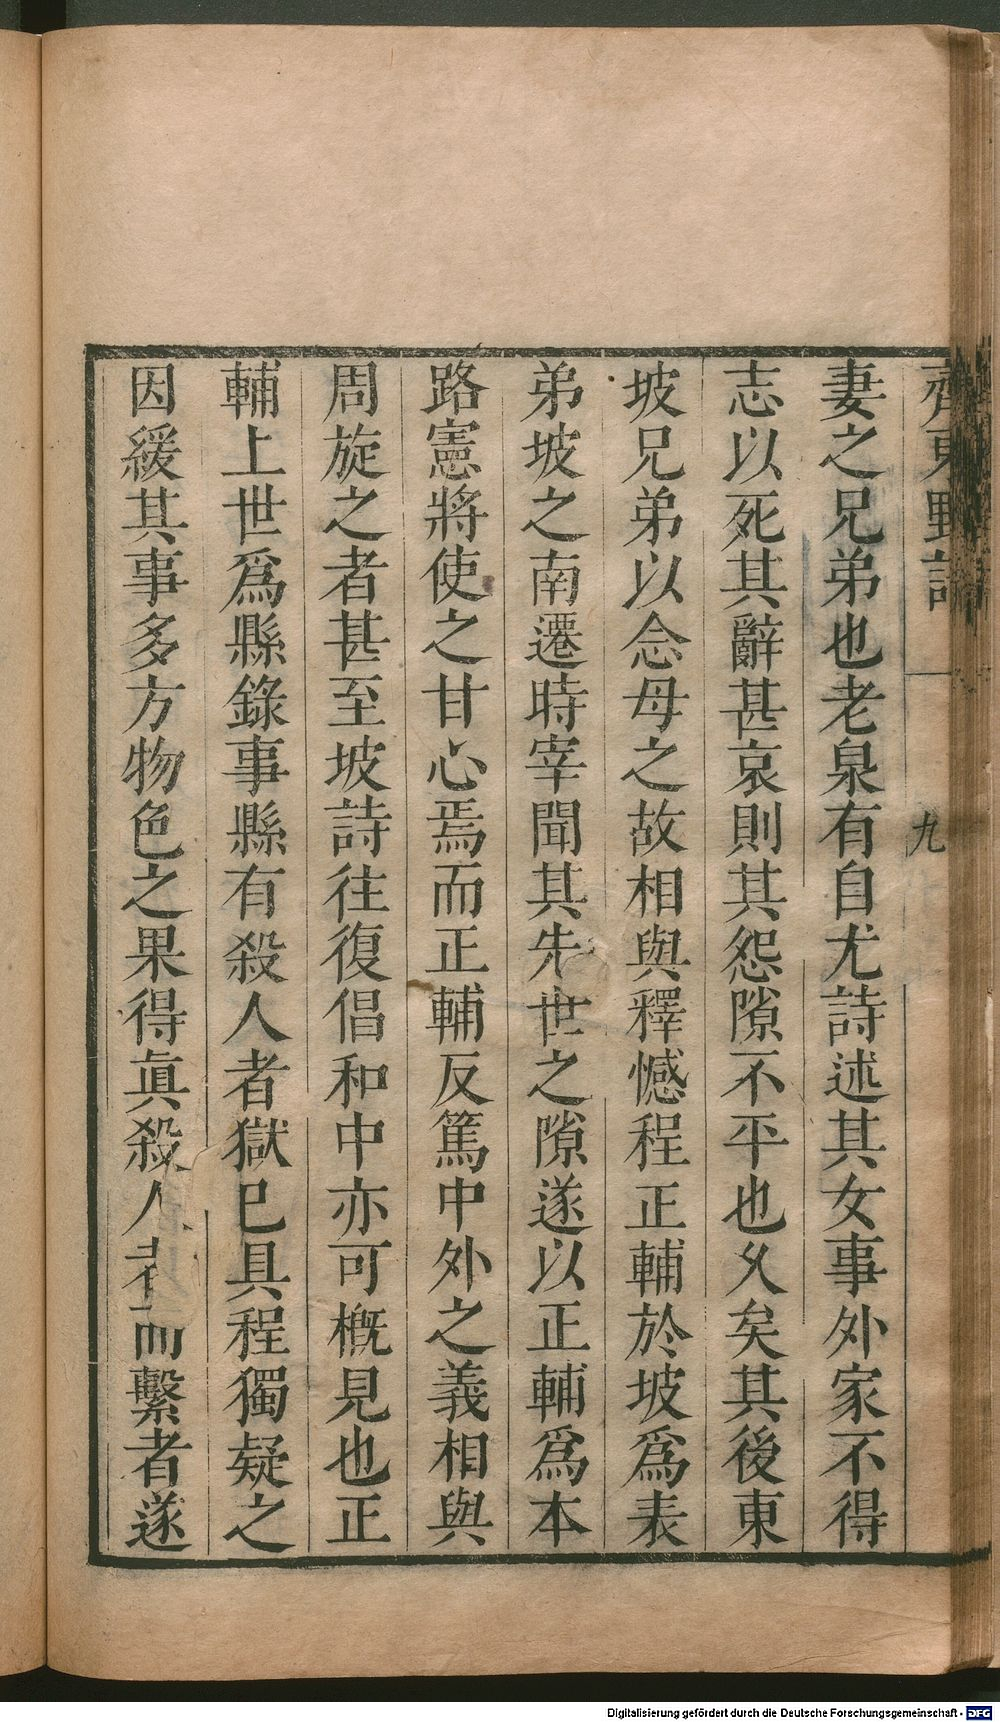 齊東野語
九
妻之兄弟也老泉有自尤詩述其女事外家不得
志以死其辭甚哀則其怨隙不平也久矣其後東
坡兄弟以念母之故相與釋憾程正輔於坡爲表
弟坡之南遷時宰聞其先世之隙遂以正輔爲本
路憲將使之甘心焉而正輔反篤中外之義相與
周旋之者甚至坡詩往復倡和中亦可槪見也正
輔上世爲縣錄事縣有殺人者獄已具程獨疑之
因緩其事多方物色之果得眞殺人者而繫者遂
Digitalisierung gefördert durch die Deutsche Forschungsgemeinschaft - DFG